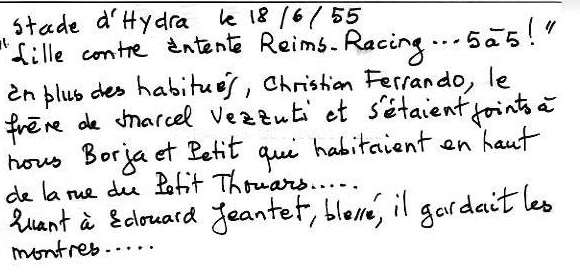 Stade d'Hydra le 18/6/55
"Lille contre Entente Reims-Racing... 5 à 5!"
En plus des habitués, Christian Ferrando, le
frère de Marcel Vezzuti et s'étaient joints à
nous Borja et Petit qui habitaient en haut
de la rue du Petit Thouars.....
Quant à Edouard Jeantet, blessé, il gardait les
montres.....